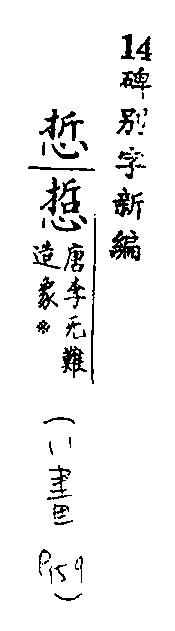 14碑別字新編
悊
唐李无難
造象※
(11畫 P159)